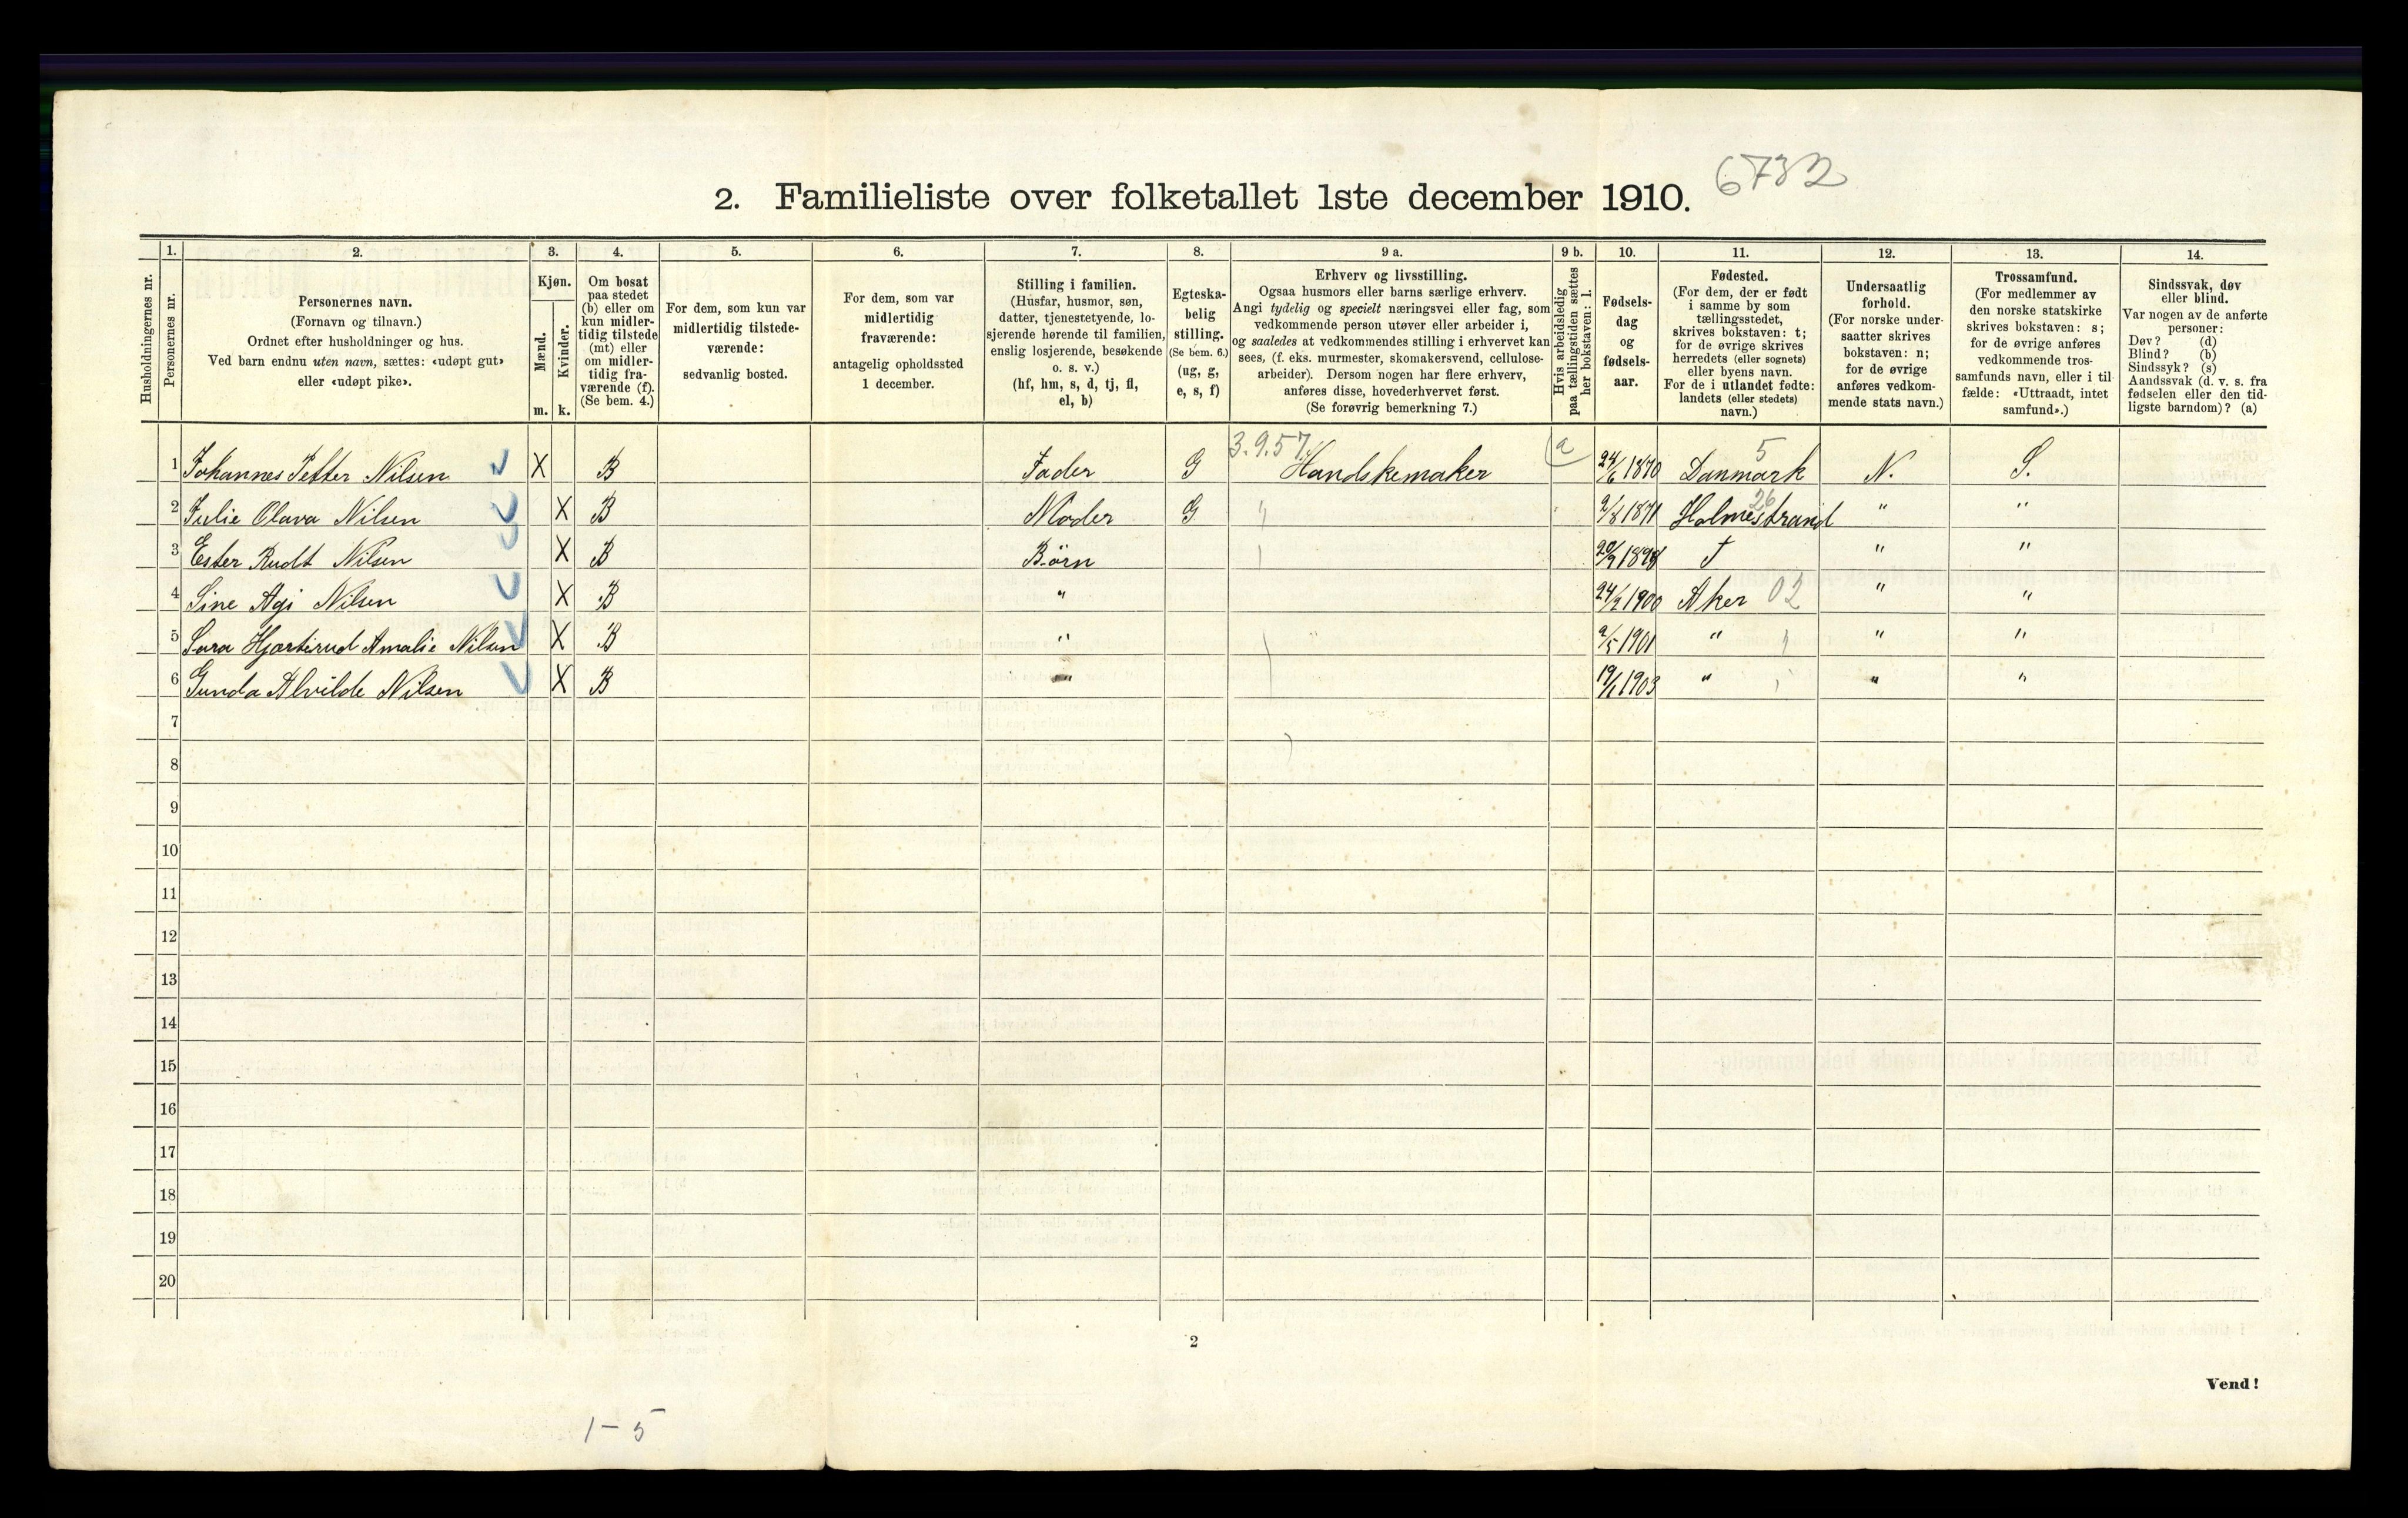 6732
2. Familieliste over folketallet 1ste december 1910.
Husholdningernes nr.
1. Personernes nr.
2. Personernes navn.
(Fornavn og tilnavn.)
Ordnet efter husholdninger og hus.
Ved barn endnu uten navn, sættes: «udøpt gut»
eller «udøpt pike».
3. Kjøn.
Mænd. m.
Kvinder. k.
4. Om bosat
paa stedet
(b) eller om
kun midler-
tidig tilstede
(mt) eller
om midler-
tidig fra-
værende (f).
(Se bem. 4.)
5. For dem, som kun var
midlertidig tilstede-
værende:
sedvanlig bosted.
6. For dem, som var
midlertidig
fraværende:
antagelig opholdssted
1 december.
7. Stilling i familien.
(Husfar, husmor, søn,
datter, tjenestetyende, lo-
sjerende hørende til familien,
enslig losjerende, besøkende
o. s. v.)
(hf, hm, s, d, tj, fl,
el, b)
8. Egteska-
belig
stilling.
(Se bem. 6.)
(ug, g,
e, s, f)
9 a. Erhverv og livsstilling.
Ogsaa husmors eller barns særlige erhverv.
Angi tydelig og specielt næringsvei eller fag, som
vedkommende person utøver eller arbeider i,
og saaledes at vedkommendes stilling i erhvervet kan
sees, (f. eks. murmester, skomakersvend, cellulose-
arbeider). Dersom nogen har flere erhverv,
anføres disse, hovederhvervet først.
(Se forøvrig bemerkning 7.)
9 b. Hvis arbeidsledig
paa tællingstiden sættes
her bokstaven: l.
10. Fødsels-
dag
og
fødsels-
aar.
11. Fødested.
(For dem, der er født
i samme by som
tællingsstedet,
skrives bokstaven: t;
for de øvrige skrives
herredets (eller sognets)
eller byens navn.
For de i utlandet fødte:
landets (eller stedets)
navn.)
12. Undersaatlig
forhold.
(For norske under-
saatter skrives
bokstaven: n;
for de øvrige
anføres vedkom-
mende stats navn.)
13. Trossamfund.
(For medlemmer av
den norske statskirke
skrives bokstaven: s;
for de øvrige anføres
vedkommende tros-
samfunds navn, eller i til-
fælde: «Uttraadt, intet
samfund».)
14. Sindssvak, døv
eller blind.
Var nogen av de anførte
personer:
Døv? (d)
Blind? (b)
Sindssyk? (s)
Aandssvak (d. v. s. fra
fødselen eller den tid-
ligste barndom)? (a)
3.9.57. a 5
1 Johannes Petter Nilsen X B Fader G Handskemaker 24/6 1870 Danmark N. S.
26
2 Julie Olava Nilsen X B Moder G 2/8 1871 Holmestrand " "
3 Ester Rudt Nilsen X B Børn T " "
4 Sine Agi Nilsen X B " 24/2 1900 Aker 02 " "
5 Sara Hjartirud Amalie Nilsen X B " 2/5 1901 " " "
6 Gunda Alvilde Nilsen X B " 19/1 1903 " " "
7
8
9
10
11
12
13
14
15
16
17
18
19
20
2
Vend!
1-5